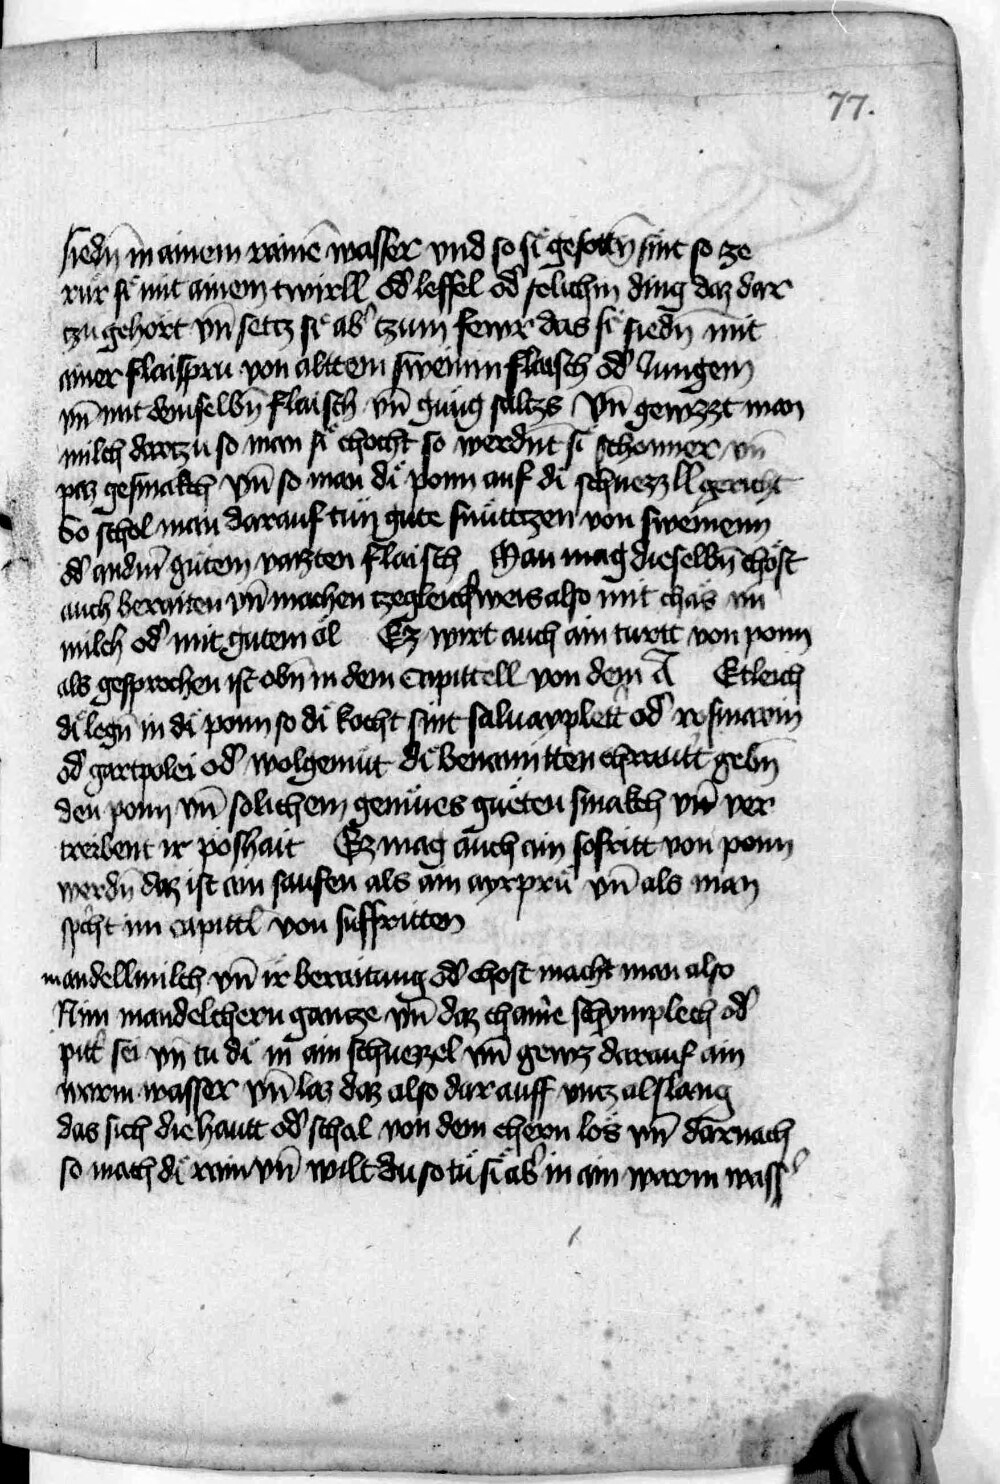 77.
siedn̄ in ainem rainē wasser vnd so si gesottn̄ sint so ze
rür si mit ainem twirll od' leffel od' solichm ding daz dar
tzu gehört vn̄ setcz si ab' tzum fewr das si siedn̄ mit
ainer flaisspru von alttem sweinin flaisch od' Jungem
vn̄ mit demselbn̄ flaisch vn̄ gnüg saltzs Vn̄ gewzzt man
milch dartzu so man si chocht so werdnt si schonner vn̄
paz gesmakch Vn̄ so man di ponn auf di schuezzll gericht
So schol man darauf tün gute snüttzen von sweinenn
od' andm̄ gütem vaizten flaisch Man mag dieselbn̄ chöst
auch beraiten vn̄ machen tzegleich weis also mit chäs vn̄
milch od' mit gutem öl Ez wirt auch ain turtt von ponn
als gesprochen ist obn̄ in dem capittell von dem A Etleich
di legn̄ in di ponn so di kocht sint saluayplett od' rosmarin
od' gartpolei od' wolgemüt di benamitten chrautt gebn̄
den ponn vn̄ solichem gemües gueten smakch vn̄ ver
treibent ir poshait Ez mag auch ain sofritt von ponn
werdn̄ daz ist ain saufen als ain ayrprü vn̄ als man
spcht im capittl von suffritten
mandellmilch vn̄ ir beraitung od' chost macht man also
Nim mandelchern gantze vn̄ daz chaine schymplech od'
pitt' sei vn̄ tu di in ain schuezzel vn̄ gewz darauf ain
warm wasser vn̄ laz daz also darauff vntz alslang
das sich die hautt od' schal von dem chern lös vn̄ darnach
so mach di rain vn̄ wilt du so tü si ab' in ain warm wass'